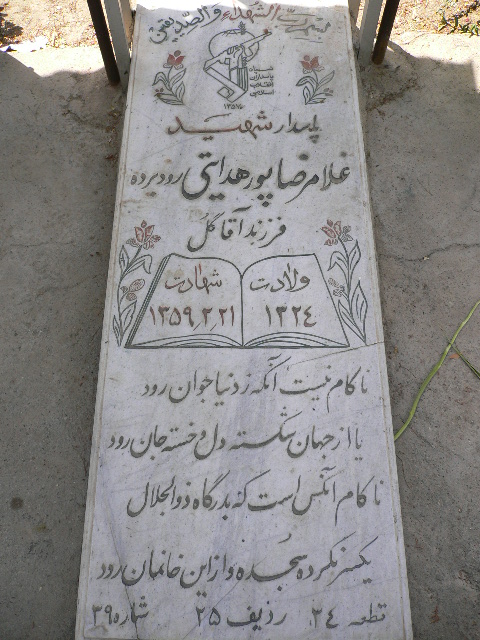 بسم رب الشهداء والصدیقین
سپاه
پاسداران
انقلاب
اسلامی
پاسدار شهید
غلامرضا پورهدایتی رودبرده
فرزند آقاگل
ولادت
۱۳۲٤
شهادت
۱۳۵۹٫۲٫۲۱
ناکام نیست آنکه ز دنیا جوان رود
یا از جهان شکسته دل و خسته جان رود
ناکام آنکس است که بدرگاه ذوالجلال
یکسر نکرده سجده و از این خانمان رود
قطعه ۲٤ ردیف ۲۵ شماره ۳۹